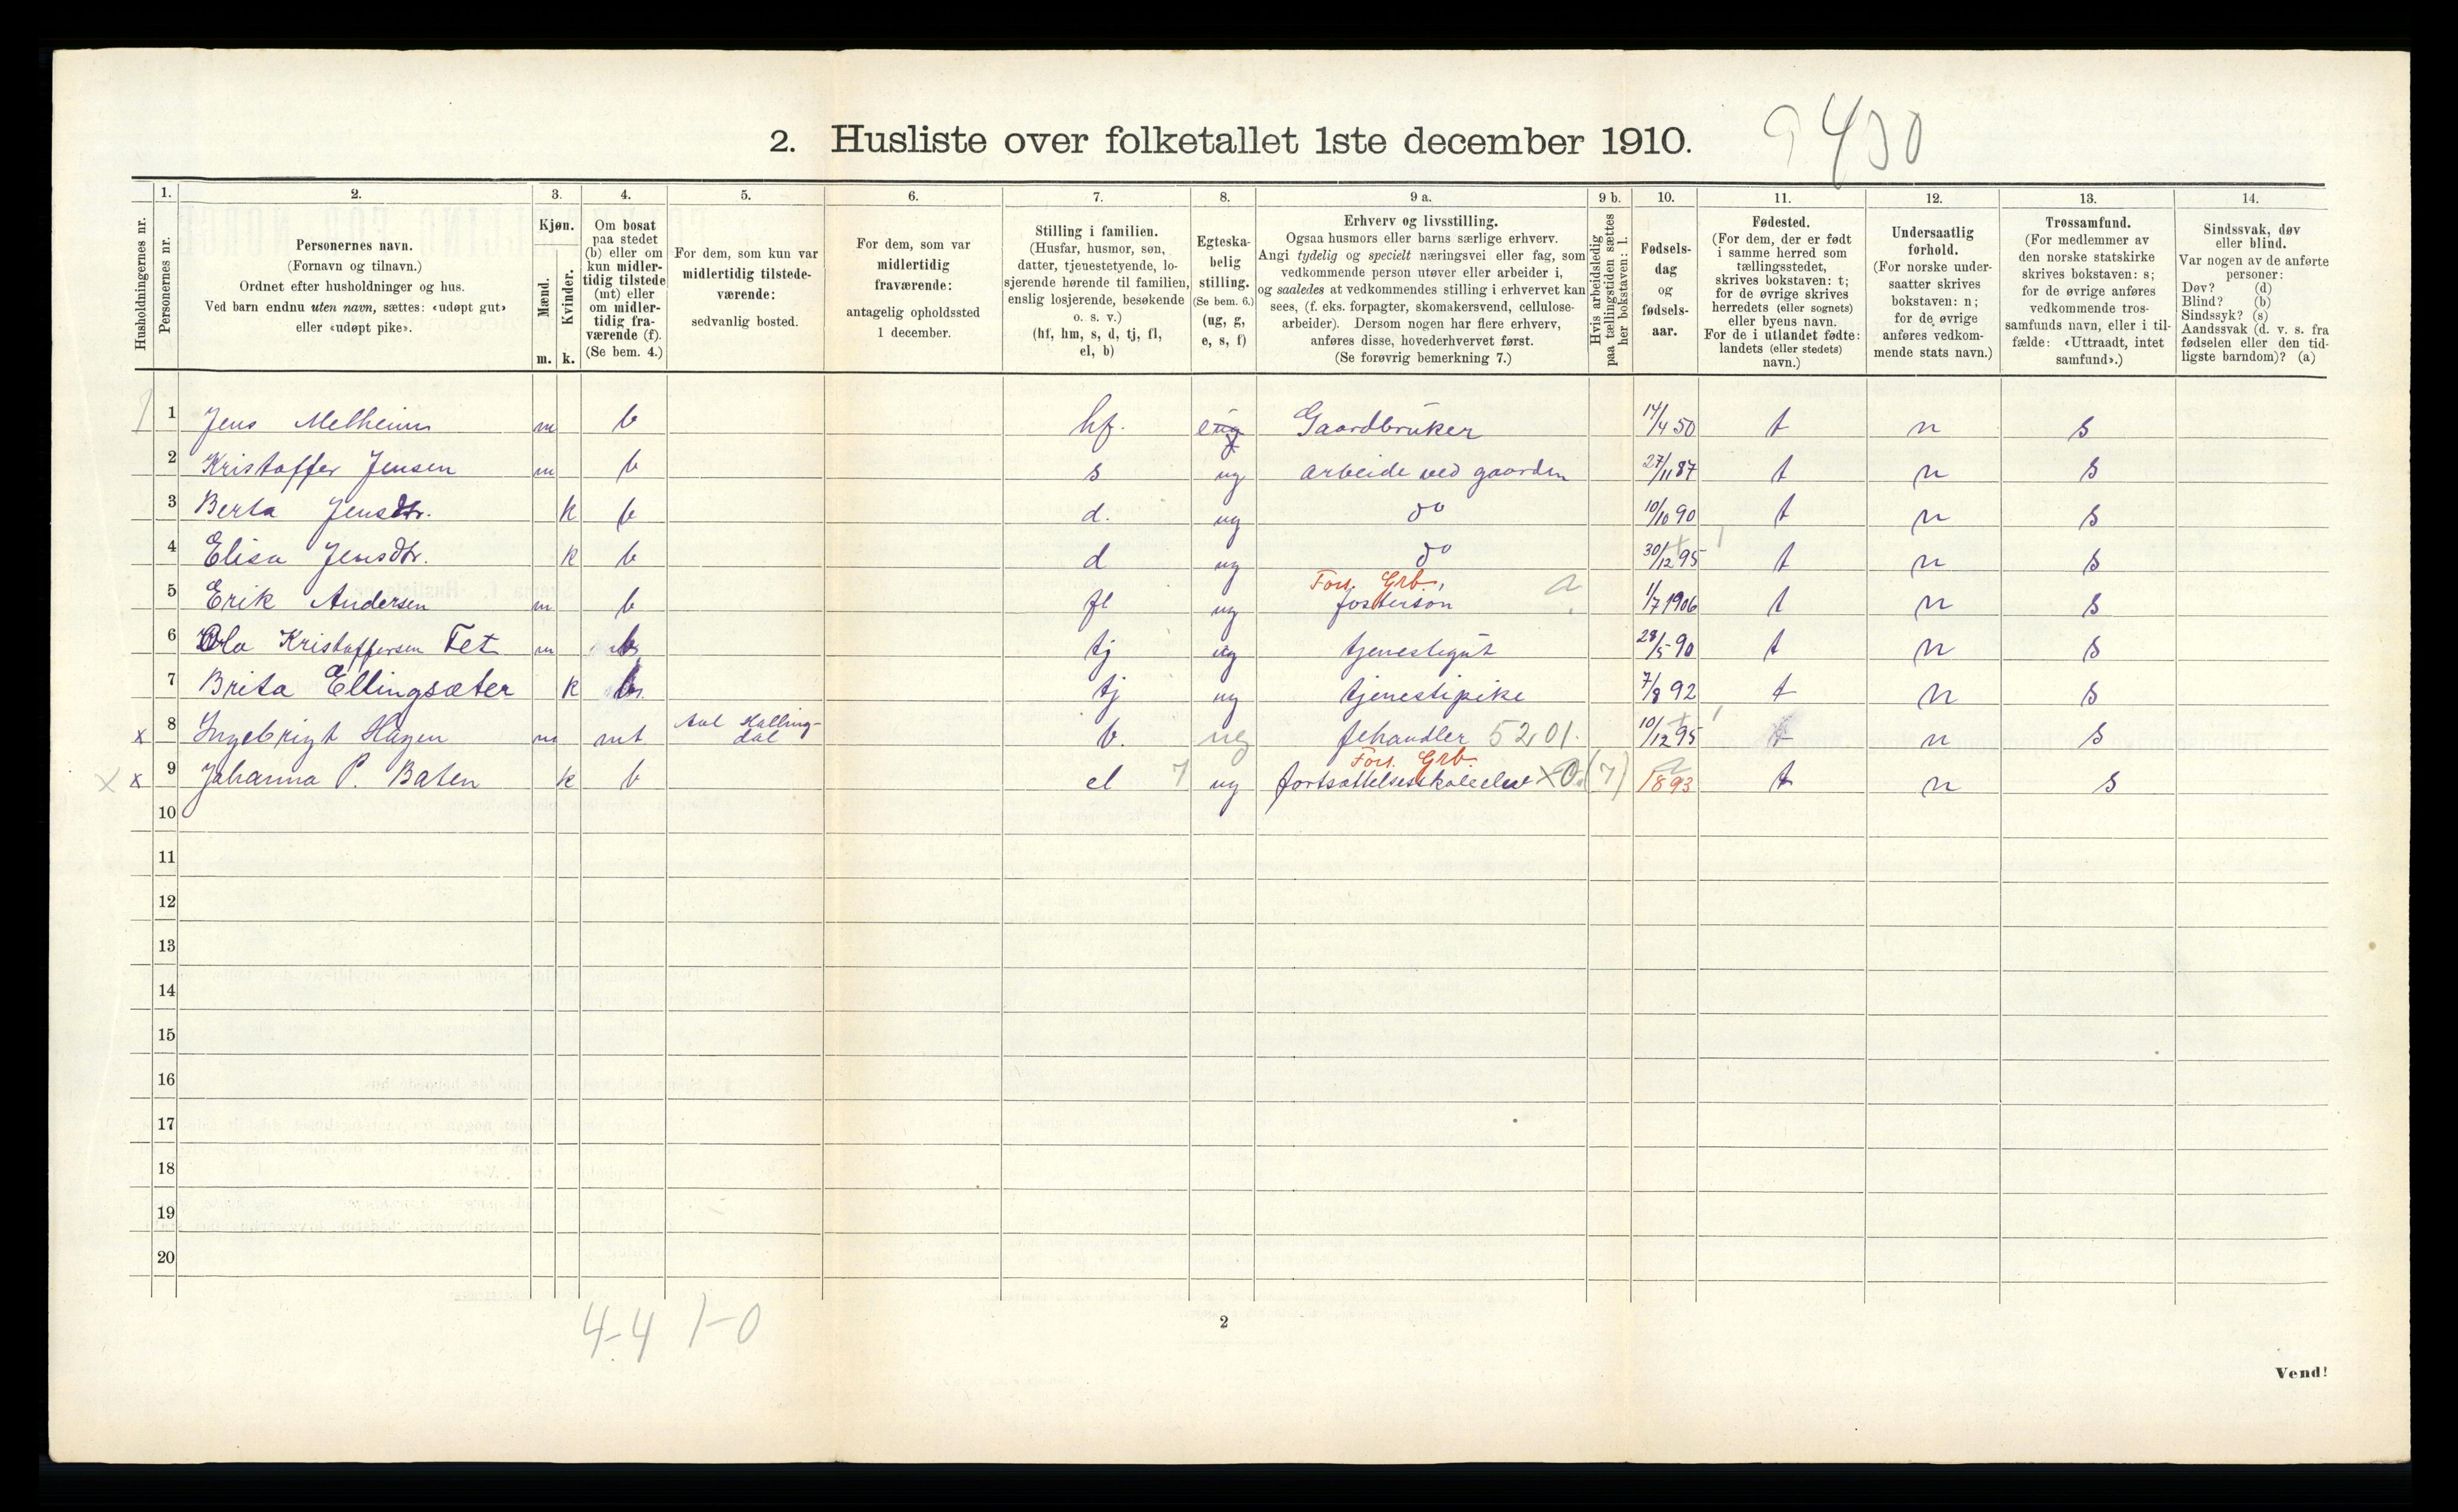 2. Husliste over folketallet 1ste december 1910.
9430
Husholdningernes nr.
1.
Personernes nr.
2.
Personernes navn.
(Fornavn og tilnavn.)
Ordnet efter husholdninger og hus.
Ved barn endnu uten navn, sættes: «udøpt gut»
eller «udøpt pike».
3.
Kjøn.
Mænd.
Kvinder.
m. k.
4.
Om bosat
paa stedet
(b) eller om
kun midler-
tidig tilstede
(mt) eller
om midler-
tidig fra-
værende (f).
(Se bem. 4.)
5.
For dem, som kun var
midlertidig tilstede-
værende:
sedvanlig bosted.
6.
For dem, som var
midlertidig
fraværende:
antagelig opholdssted
1 december.
7.
Stilling i familien.
(Husfar, husmor, søn,
datter, tjenestetyende, lo-
sjerende hørende til familien,
enslig losjerende, besøkende
o. s. v.)
(hf, hm, s, d, tj, fl,
el, b)
8.
Egteska-
belig
stilling.
(Se bem. 6.)
(ug, g,
e, s, f)
9 a.
Erhverv og livsstilling.
Ogsaa husmors eller barns særlige erhverv.
Angi tydelig og specielt næringsvei eller fag, som
vedkommende person utøver eller arbeider i,
og saaledes at vedkommendes stilling i erhvervet kan
sees, (f. eks. forpagter, skomakersvend, cellulose-
arbeider). Dersom nogen har flere erhverv,
anføres disse, hovederhvervet først.
(Se forøvrig bemerkning 7.)
9 b.
Hvis arbeidsledig
paa tællingstiden sættes
her bokstaven: l.
10.
Fødsels-
dag
og
fødsels-
aar.
11.
Fødested.
(For dem, der er født
i samme herred som
tællingsstedet,
skrives bokstaven: t;
for de øvrige skrives
herredets (eller sognets)
eller byens navn.
For de i utlandet fødte:
landets (eller stedets)
navn.)
12.
Undersaatlig
forhold.
(For norske under-
saatter skrives
bokstaven: n;
for de øvrige
anføres vedkom-
mende stats navn.)
13.
Trossamfund.
(For medlemmer av
den norske statskirke
skrives bokstaven: s;
for de øvrige anføres
vedkommende tros-
samfunds navn, eller i til-
fælde: «Uttraadt, intet
samfund».)
14.
Sindssvak, døv
eller blind.
Var nogen av de anførte
personer:
Døv? (d)
Blind? (b)
Sindssyk? (s)
Aandssvak (d. v. s. fra
fødselen eller den tid-
ligste barndom)? (a)
1 1 Jens Melheim m b hf. e Gaardbruker 14/4 50 t n s
2 Kristoffer Jensen m b s ug arbeide ved gaarden 27/11 87 t n s
3 Berta Jensdtr. k b d. ug do 10/10 90 t n s
4 Elisa Jensdtr. k b d ug do 30/12 95 t n s
Fors. Grb.,
5 Erik Andersen m b fl ug fosterson 1/7 1906 t n s
6 Ola Kristoffersen Tet m b tj ug tjenestegut 28/5 90 t n s
7 Brita Ellingsæter k b tj ug tjenestepike 7/8 92 t n s
x 8 Ingebrigt Hagen m mt Aal Halling-
dal b. ug fehandler 5201. 10/12 95 t n s
Fors. Grb.
x x 9 Johanna P. Baten k b el 7 ug fortsættelsesskoleelev x0. (7) 1893 t n s
10
11
12
13
14
15
16
17
18
19
20
4-4 1-0
2
Vend!